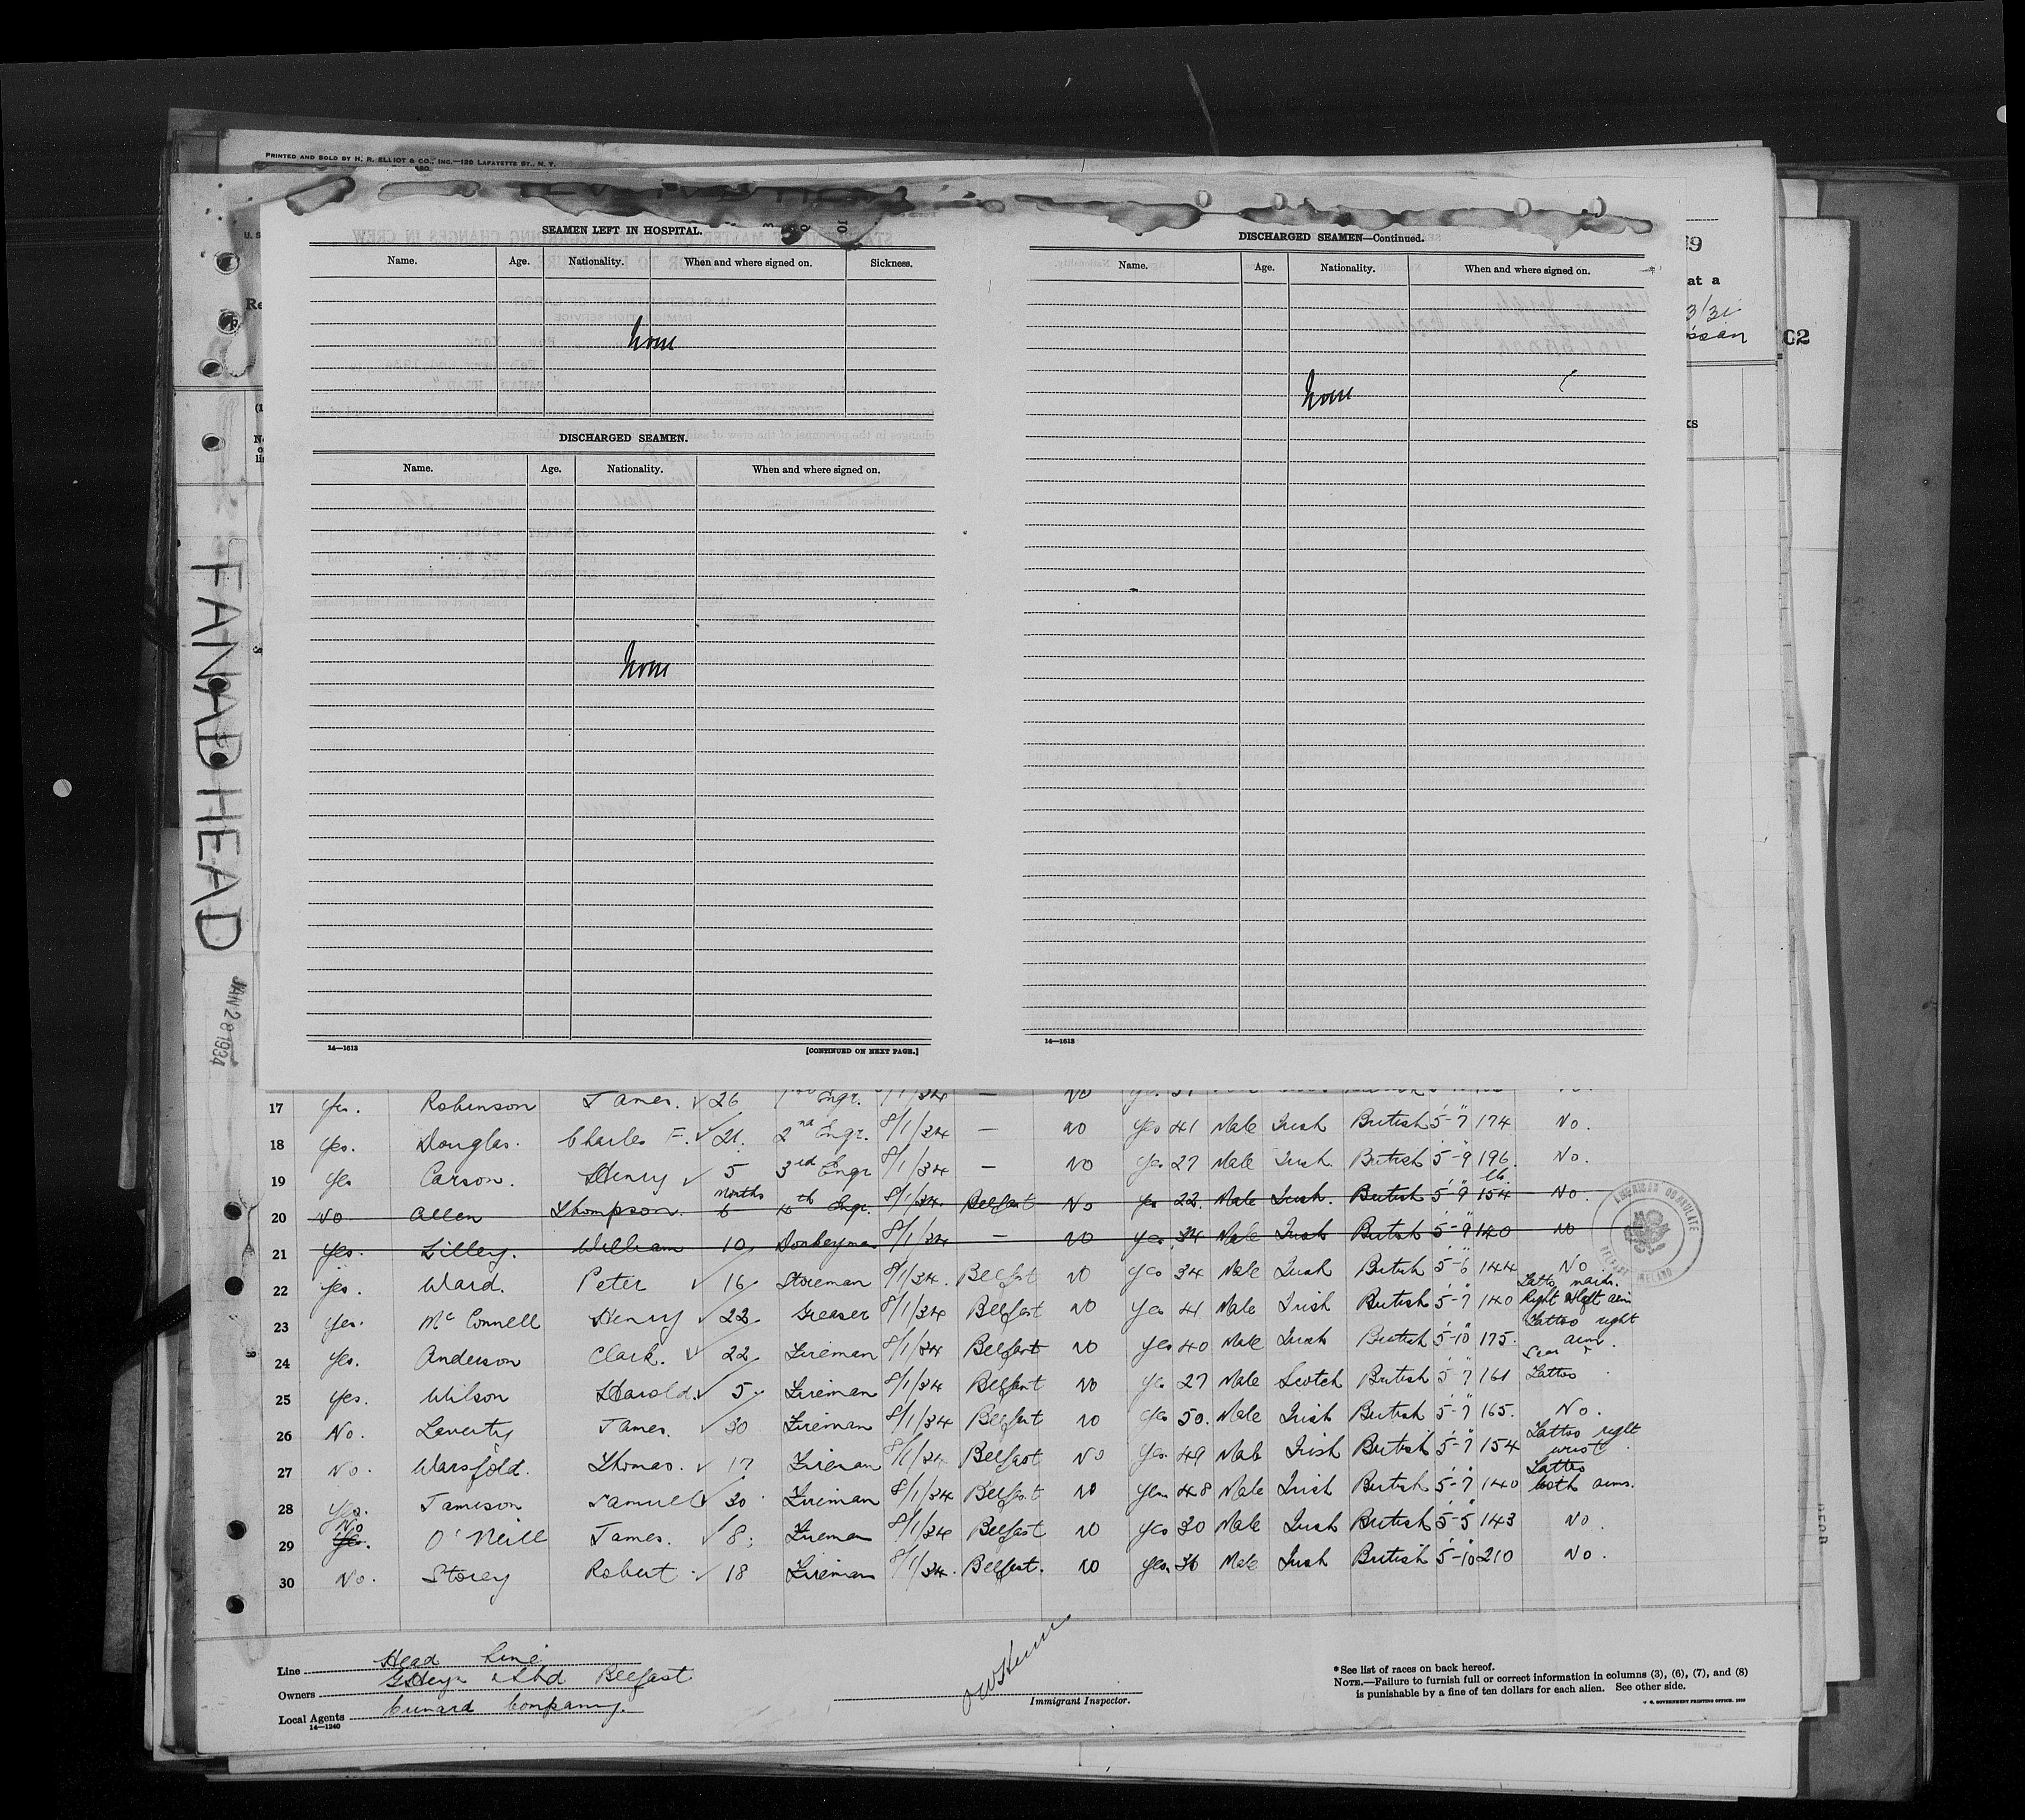 PRINTED AND SOLD BY H. R. ELLIOT & CO., INC.—120 LAFAYETTE ST., N. Y.
SEAMEN LEFT IN HOSPITAL.
Name. Age. Nationality. When and where signed on. Sickness.
None
DISCHARGED SEAMEN.
Name. Age. Nationality. When and where signed on.
None
14—1613 [CONTINUED ON NEXT PAGE.]
DISCHARGED SEAMEN—Continued.
Name. Age. Nationality. When and where signed on.
None
14—1613
at a
62
FANAD HEAD
JAN 28 1934
17 Yes. Robinson James. 26 Engr. 8/1/34 — No
18 Yes. Douglas. Charles F. 21. 2nd Engr. 8/1/34 — No Yes 41 Male Irish British 5-7" 174 No.
19 Yes Carson. Henry 5 3rd Engr 8/1/34 — No Yes 27 Male Irish British 5-9 196 No.
20 No Allen Thompson. 6 months Engr. 8/1/34 Belfast No Yes 22. Male Irish. British 5-9 154 lb. No.
21 Yes. Lilley. William 10 Donkeyman 8/1/34 — No Yes 34 Male Irish British 5-9 140 No
22 Yes. Ward. Peter 16 Storeman 8/1/34. Belfast No Yes 34 Male Irish British 5-6 144 No.
23 Yes. McConnell Henry 22 Greaser 8/1/34 Belfast No Yes 41 Male Irish British 5-7 140 Tatto marks. Right & left arm
24 Yes. Anderson Clark. 22 Fireman 8/1/34 Belfast No Yes 40 Male Irish British 5-10 175. Tattoo right arm.
25 Yes. Wilson Harold. 5 Fireman 8/1/34 Belfast No Yes 27 Male Scotch British 5-7 161 Scar Tattoo
26 No. Laverty James. 30 Fireman 8/1/34 Belfast No Yes 50. Male Irish British 5-7 165. No.
27 No. Warsfold. Thomas. 17 Fireman 8/1/34 Belfast No Yes. 49 Male Irish British 5-7 154 Tattoo right wrist
28 Yes. Jamison Samuel 30 Fireman 8/1/34 Belfast No Yes 48 Male Irish British 5-7 140 Tattoo both arms.
29 No Yes. O'Neill James. 8. Fireman 8/1/34 Belfast No Yes 30 Male Irish British 5-5 143 No
30 No. Storey Robert 18 Fireman 8/1/34. Belfast. No Yes. 36 Male Irish British 5-10 210 No.
AMERICAN CONSULATE
BELFAST IRELAND
Line Head Line
Owners Ltd Belfast
Local Agents Cunard Company.
14—1240
Immigrant Inspector.
*See list of races on back hereof.
NOTE.—Failure to furnish full or correct information in columns (3), (6), (7), and (8)
is punishable by a fine of ten dollars for each alien. See other side.